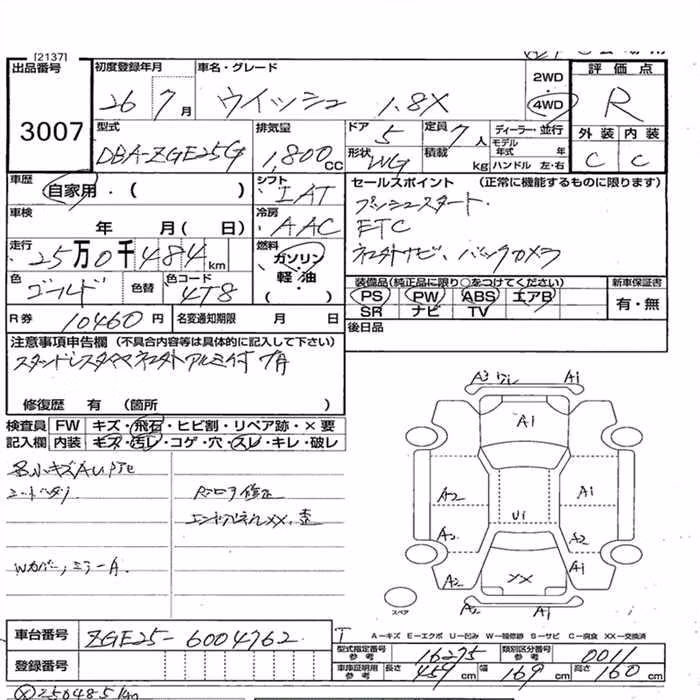 [2137]
出品番号 初度登録年月 車名・グレード 2WD 評価点
3007 26 7月 ウイッシュ 1.8X 4WD R
型式 排気量 ドア 定員 ディーラー・並行 外装 内装
DBA-ZGE25G 1,800CC 5 7人 モデル年式 年 C C
形状 WG 積載 kg ハンドル 左・右
車歴 自家用・( ) シフト IAT セールスポイント (正常に機能するものに限ります)
車検 年 月(日) 冷房 AAC プッシュスタート
ETC
走行 25万0千484km 燃料 ガソリン・軽・油 ( ) ネエ外ナビ、バックカメラ
色 ゴールド 色替 色コード 4T8 装備品(純正品に限り○をつけてください) 新車保証書
PS PW ABS エアB 有・無
SR ナビ TV
R券 10460円 名変通知期限 月 日 後日品
注意事項申告欄 (不具合内容等は具体的に記入して下さい)
スタッドレスタイヤ ネエ外アルミ付
修復歴 有 (箇所 )
検査員 FW キズ・飛石・ヒビ割・リペア跡・×要
記入欄 内装 キズ・汚レ・コゲ・穴・スレ・キレ・破レ
A3 A1
A1
A2 A1
U1
A2 A2 A1
A2 XX A1
スペア
小キズAU
修正
XX、歪
Wカバー、ミラーA
A-キズ E-エクボ U-凹み W-補修跡 S-サビ C-腐食 XX-交換済
車台番号 ZGE25-6004762
型式指定番号 参考 16275 類別区分番号 参考 0011
登録番号 車庫証明用 参考 長さ 459cm 幅 169cm 高さ 160cm
250485km